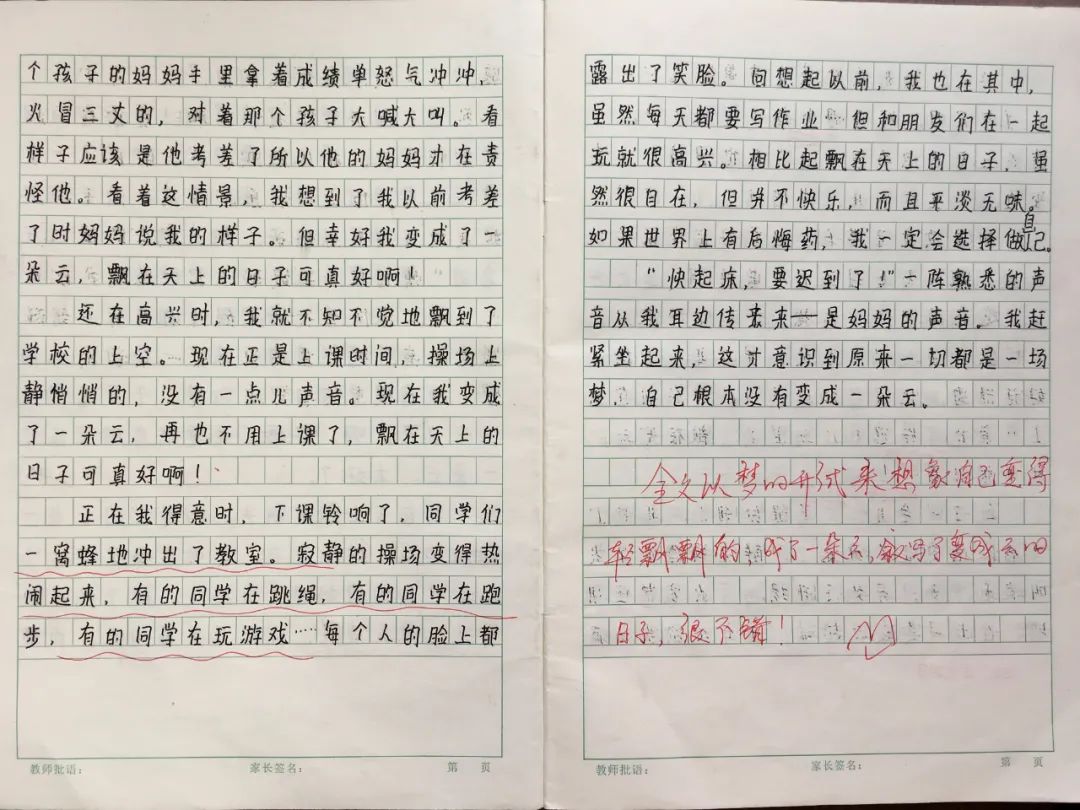 个孩子的妈妈手里拿着成绩单怒气冲冲，
火冒三丈的，对着那个孩子大喊大叫。看
样子应该是他考差了所以他的妈妈才在责
怪他。看着这情景，我想到了我以前考差
了时妈妈说我的样子。但幸好我变成了一
朵云，飘在天上的日子可真好啊！
还在高兴时，我就不知不觉地飘到了
学校的上空。现在正是上课时间，操场上
静悄悄的，没有一点儿声音。现在我变成
了一朵云，再也不用上课了，飘在天上的
日子可真好啊！
正在我得意时，下课铃响了，同学们
一窝蜂地冲出了教室。寂静的操场变得热
闹起来，有的同学在跳绳，有的同学在跑
步，有的同学在玩游戏……每个人的脸上都
教师批语：
家长签名：
第 页
露出了笑脸。回想起以前，我也在其中，
虽然每天都要写作业，但和朋友们在一起
玩就很高兴。相比起飘在天上的日子，虽
然很自在，但并不快乐，而且平淡无味。
如果世界上有后悔药，我一定会选择做自己。
“快起床，要迟到了！”一阵熟悉的声
音从我耳边传来——是妈妈的声音。我赶
紧坐起来，这才意识到原来一切都是一场
梦，自己根本没有变成一朵云。
全文以梦的形式来想象自己变得
轻飘飘的，成了一朵云，叙写了变成云的
日子，很不错！
教师批语：
家长签名：
第 页